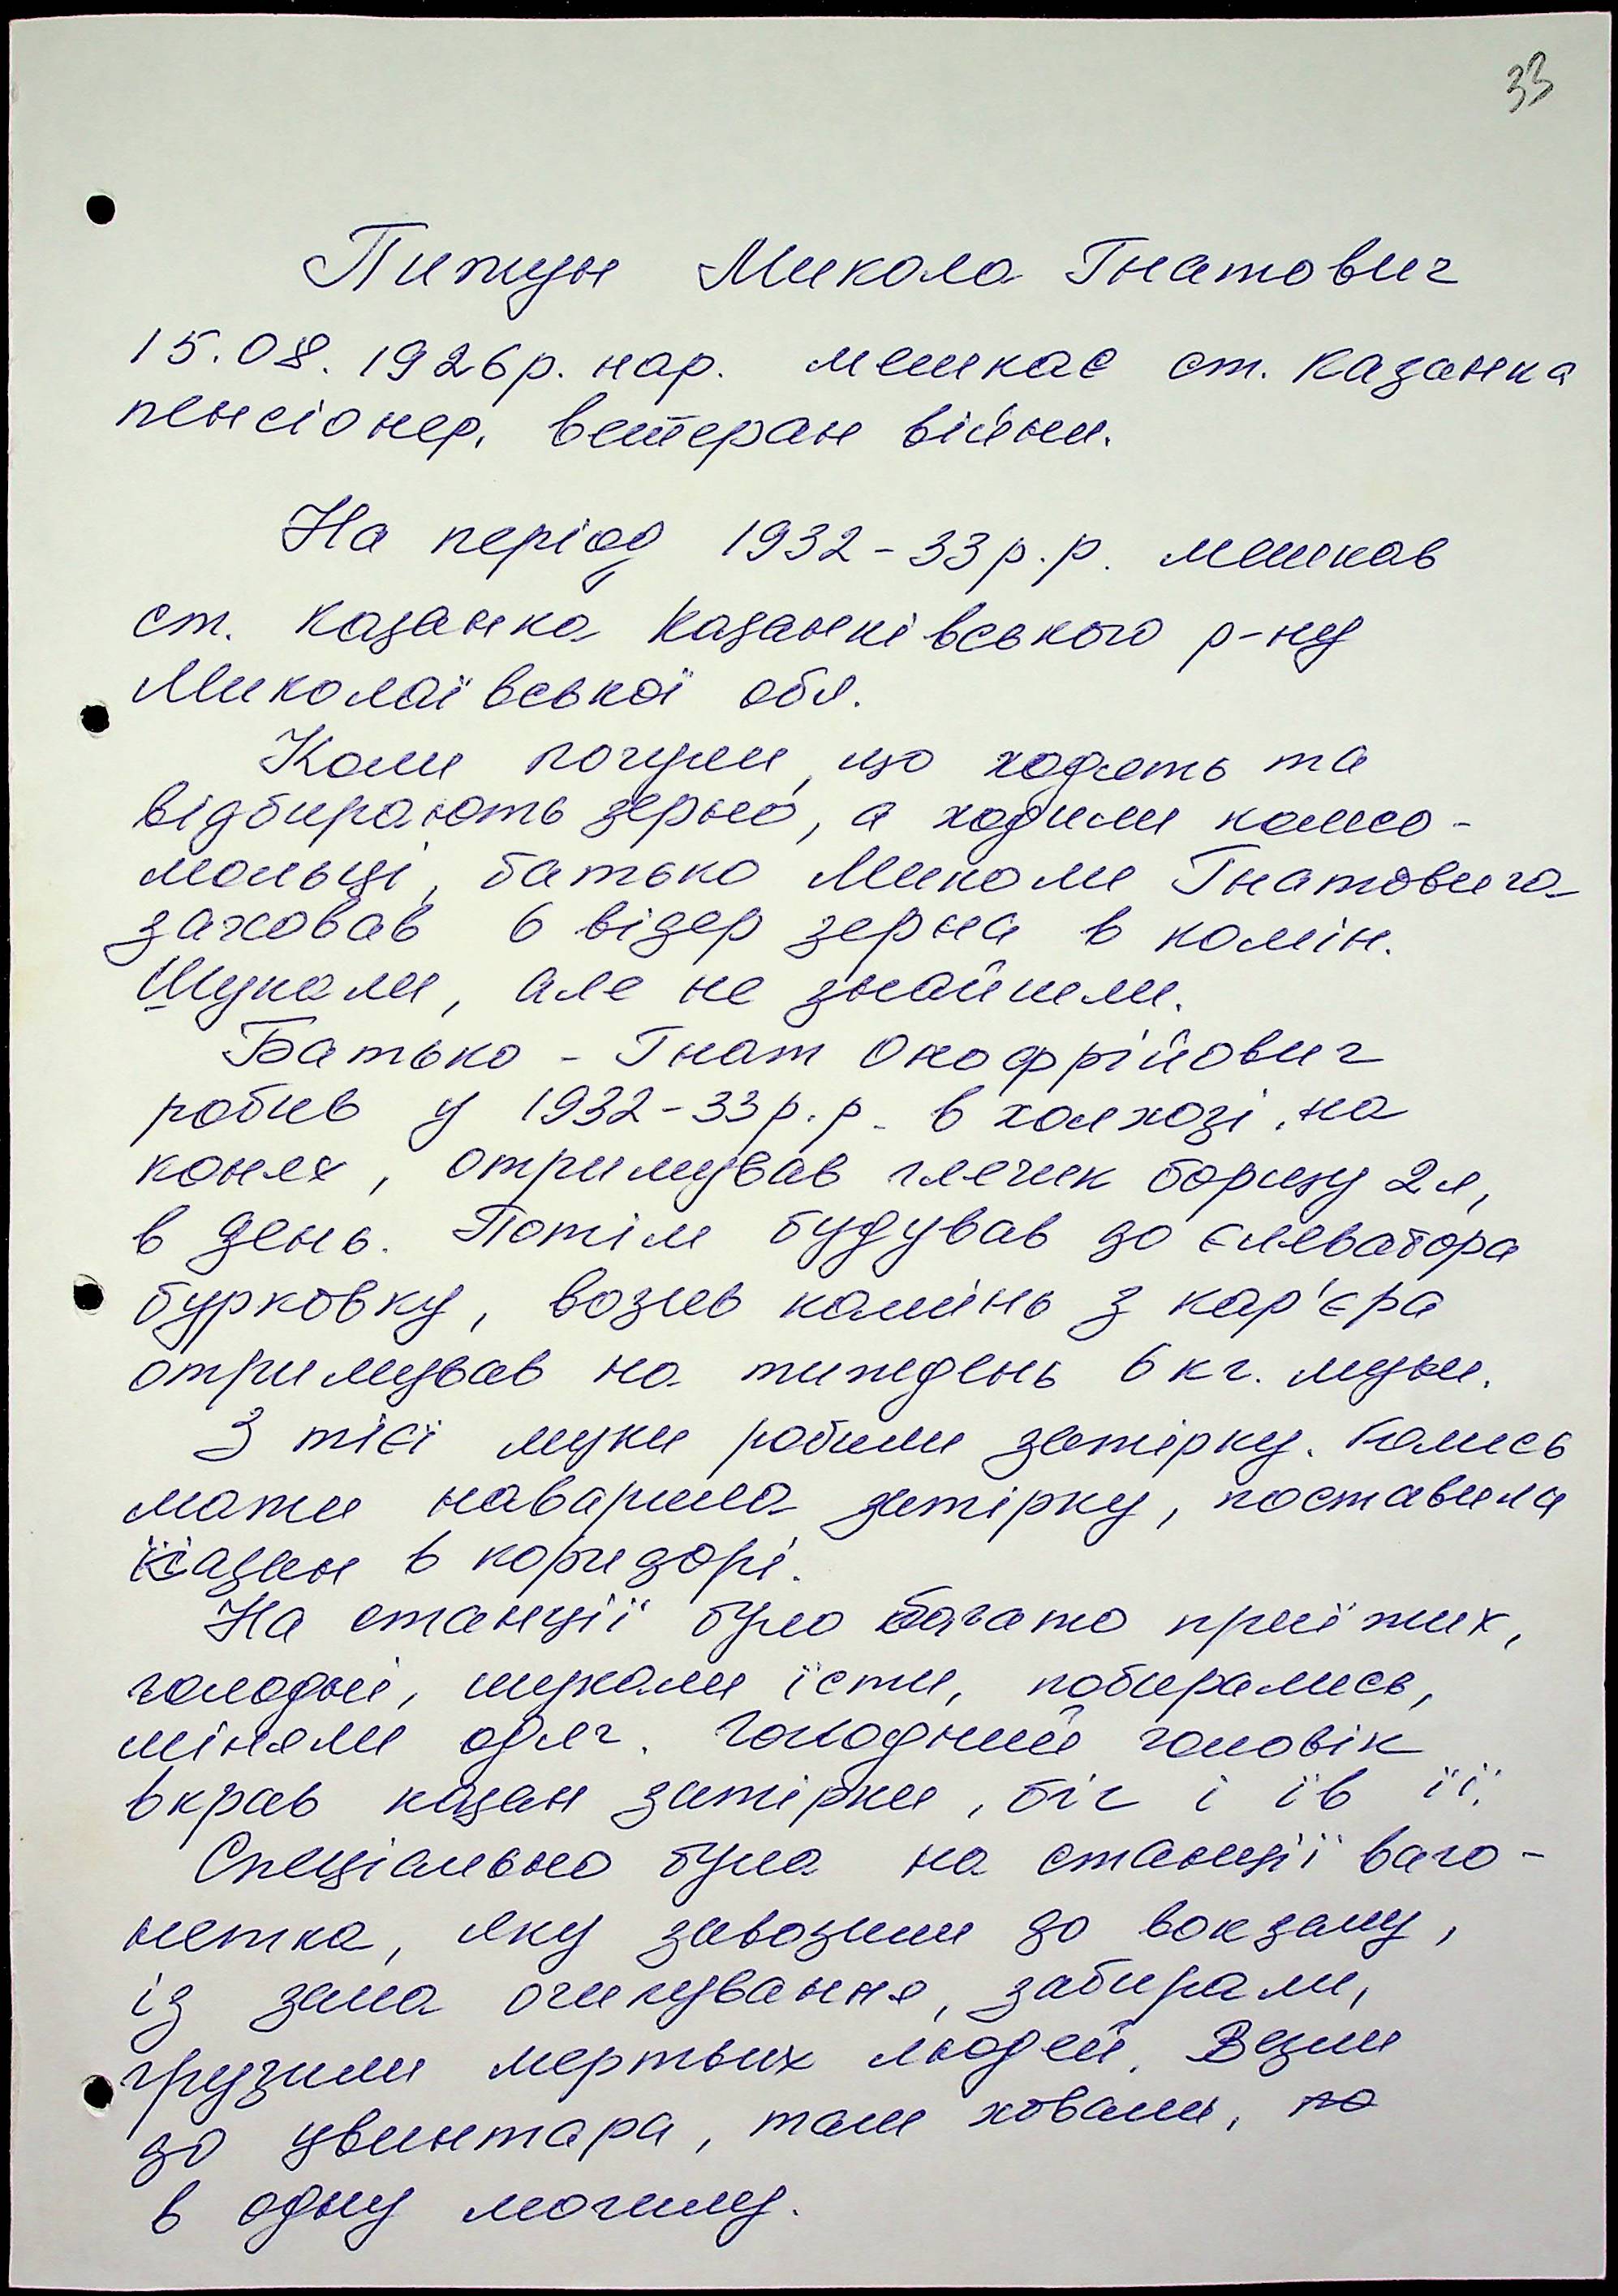 33
Пижун Микола Гнатович
15.08.1926р. нар. мешкає ст. Казанка
пенсіонер, ветеран війни.
На період 1932-33р.р. мешкав
ст. Казанка Казанківського р-ну
Миколаївської обл.
Коли почули, що ходять та
відбирають зерно, а ходили комсо-
мольці, батько Миколи Гнатовича
заховав 6 відер зерна в комін.
Шукали, але не знайшли.
Батько - Гнат Онофрійович
робив у 1932-33р.р. в холхозі, на
конях, отримував глечик борщу 2л,
в день. Потім будував до єлеватора
бурковку, возив камінь з кар'єра
отримував на тиждень 6 кг. муки.
З тієї муки робили затірку. Колись
мати наварила затірку, поставила
казан в коридорі.
На станції було багато приїжих,
голодні, шукали їсти, побирались,
міняли одяг. Голодний чоловік
вкрав казан затірки, біг і їв її.
Спеціально була на станції ваго-
нетка, яку завозили до вокзалу,
із зала очикування, забирали,
грузили мертвих людей. Везли
до цвинтара, там ховали, по
в одну могилу.